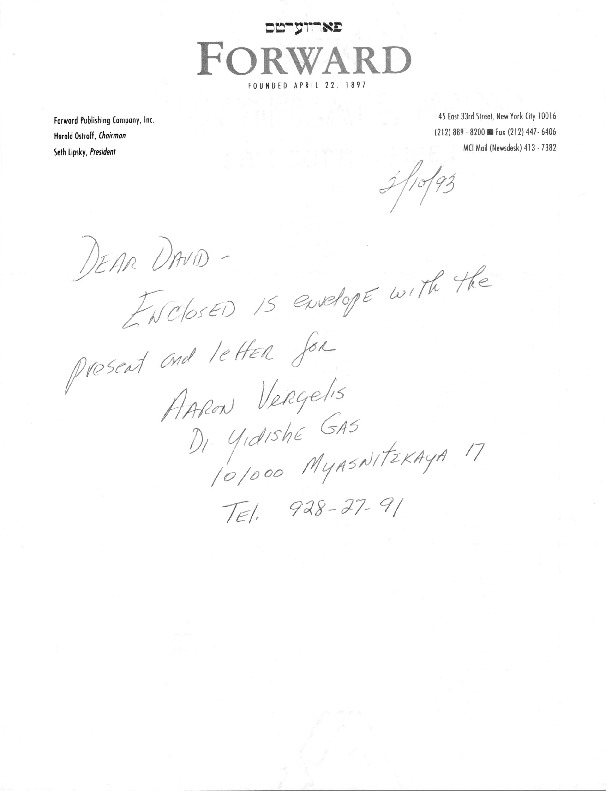 פֿאָרווערטס
FORWARD
FOUNDED APRIL 22, 1897
Forward Publishing Company, Inc.
Harold Ostroff, Chairman
Seth Lipsky, President
45 East 33rd Street, New York City 10016
(212) 889 - 8200 ■ Fax (212) 447- 6406
MCI Mail (Newsdesk) 413 - 7382
2/10/93
DEAR DAVID -
ENCLOSED IS ENVELOPE with the
present and letter for
AARON VERGELIS
DI YIDISHE GAS
101000 MYASNITZKAYA 17
TEL. 928-27-91